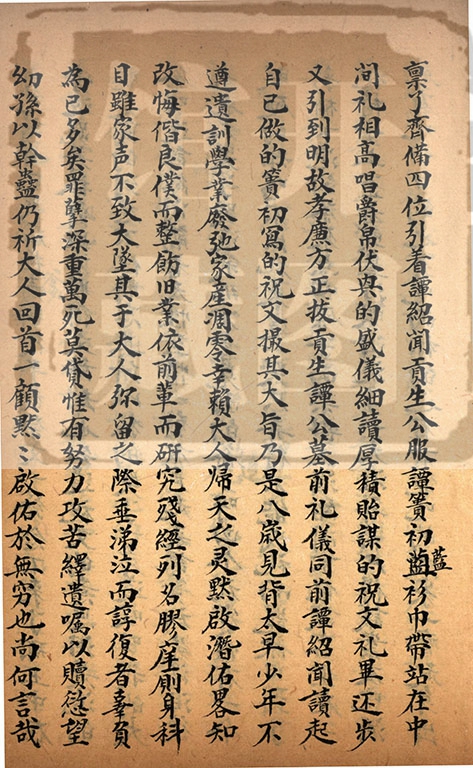 禀了齊偹四位引着譚紹聞貢生公服譚簣初藍衫巾帶站在中
间礼相高唱爵帛伏典的盛儀細讀厚積貽謀的祝文礼畢还步
又引到明故孝廉方正拔貢生譚公墓前礼儀同前譚紹聞讀起
自己做的簣初寫的祝文撮其大旨乃是八歲見背太早少年不
遵遺訓學業廢弛家産凋零幸賴大人歸天之灵默啟潛佑畧知
改悔偕良僕而整飭旧業依前輩而研究殘經列名膠庠厠身科
目雖家声不致大墜其于大人弥留之際垂涕泣而諄復者辜負
為已多矣罪孽深重萬死莫貸惟有努力攻苦繹遺嘱以贖愆望
幼孫以幹蠱仍祈大人回首一顧默〻啟佑於無穷也尚何言哉